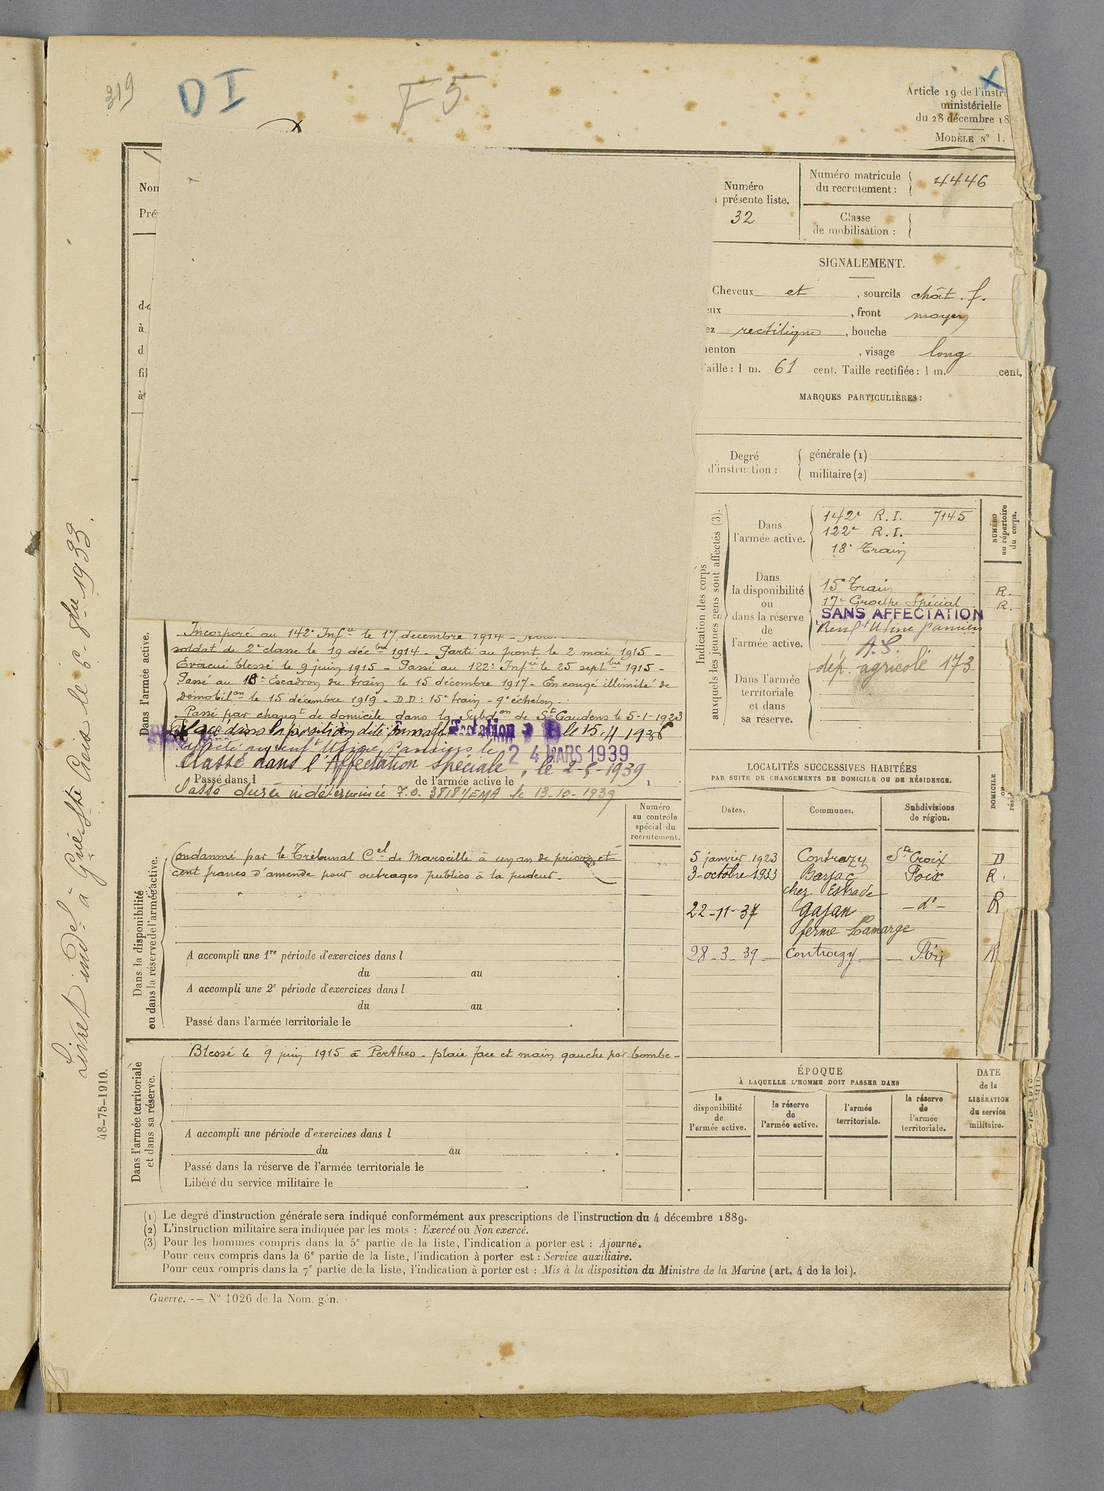 319
DI
F5
X
Article 19 de l'instr
ministérielle
du 28 décembre 18
MODÈLE N° 1.
Nom
Pré
de
à
d
fil
à
Numéro
présente liste.
32
Numéro matricule
du recrutement : 4446
Classe
de mobilisation :
SIGNALEMENT.
Cheveux et , sourcils chât. f.
eux , front moyen
ez rectiligne , bouche
enton , visage long
aille : 1 m. 61 cent. Taille rectifiée : 1 m. cent.
MARQUES PARTICULIÈRES :
Degré
d'instruction :
générale (1)
militaire (2)
Indication des corps
auxquels les jeunes gens sont affectés (3).
NUMÉRO
au répertoire
du corps.
Dans
l'armée active.
142e R.I. 7145
122e R.I.
18e Train
Dans
la disponibilité
ou
dans la réserve
de
l'armée active.
15e Train R.
17e Groupe Spécial R.
SANS AFFECTATION
Renft Usine Pamiers
A.S.
Dans l'armée
territoriale
et dans
sa réserve.
dép. agricole 173.
Dans l'armée active.
Incorporé au 142e Infie le 17 décembre 1914 -
soldat de 2e classe le 19 décbre 1914 - Parti au front le 2 mai 1915 -
Évacué blessé le 9 juin 1915 - Passé au 122e Infie le 25 septbre 1915 -
Passé au 18e Escadron du train le 15 décembre 1917 - En congé illimité de
démobilon le 15 décembre 1919 - DD : 15e train - 9e échelon -
Passé par changt de domicile dans la Subdon de St Gaudens le 5-1-1923
Placé dans la position dite Sans affectation le 15.4.1936
24 MARS 1939
Classé dans l'Affectation spéciale, le 2-5-1939
Passé dans l de l'armée active le
Passé durée indéterminée F.O. 3818 1/EMA le 13-10-1939
Numéro
au contrôle
spécial du
recrutement.
Dans la disponibilité
ou dans la réserve de l'armée active.
Condamné par le Tribunal Cel de Marseille à un an de prison et
cent francs d'amende pour outrages publics à la pudeur -
A accompli une 1re période d'exercices dans l
du au
A accompli une 2e période d'exercices dans l
du au
Passé dans l'armée territoriale le
Dans l'armée territoriale
et dans sa réserve.
Blessé le 9 juin 1915 à Perthes - plaie face et main gauche par bombe -
A accompli une période d'exercices dans l
du au
Passé dans la réserve de l'armée territoriale le
Libéré du service militaire le
LOCALITÉS SUCCESSIVES HABITÉES
PAR SUITE DE CHANGEMENTS DE DOMICILE OU DE RÉSIDENCE.
Dates.
Communes.
Subdivisions
de région.
DOMICILE
ou
5 janvier 1923 Contrazy Ste Croix D
3-octobre 1933 Barjac Foix R.
chez Estrade
22-11-37 Gajan -d°- R
ferme Lamarge
28-3-39 Contrazy Foix R
ÉPOQUE
À LAQUELLE L'HOMME DOIT PASSER DANS
la
disponibilité
de
l'armée active.
la réserve
de
l'armée active.
l'armée
territoriale.
la réserve
de
l'armée
territoriale.
DATE
de la
LIBÉRATION
du service
militaire.
(1) Le degré d'instruction générale sera indiqué conformément aux prescriptions de l'instruction du 4 décembre 1889.
(2) L'instruction militaire sera indiquée par les mots : Exercé ou Non exercé.
(3) Pour les hommes compris dans la 5e partie de la liste, l'indication à porter est : Ajourné.
Pour ceux compris dans la 6e partie de la liste, l'indication à porter est : Service auxiliaire.
Pour ceux compris dans la 7e partie de la liste, l'indication à porter est : Mis à la disposition du Ministre de la Marine (art. 4 de la loi).
Guerre. -- N° 1026 de la Nom. gén.
48-75-1910.
Livret indel à Gie Ste Croix le 6-8bre 1933.